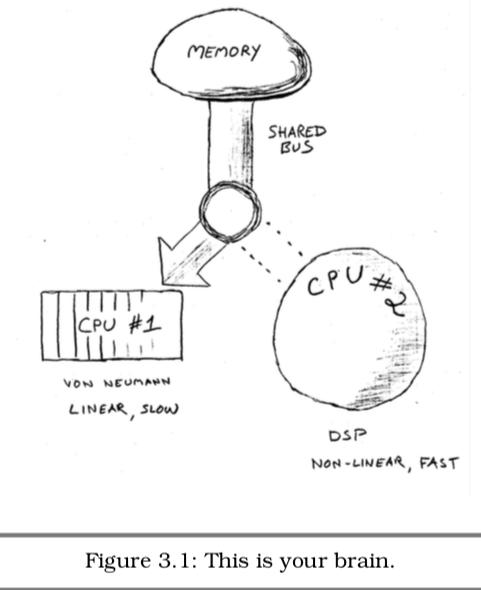 MEMORY
SHARED
BUS
CPU #2
CPU #1
VON NEUMANN
LINEAR, SLOW
DSP
NON-LINEAR, FAST
Figure 3.1: This is your brain.